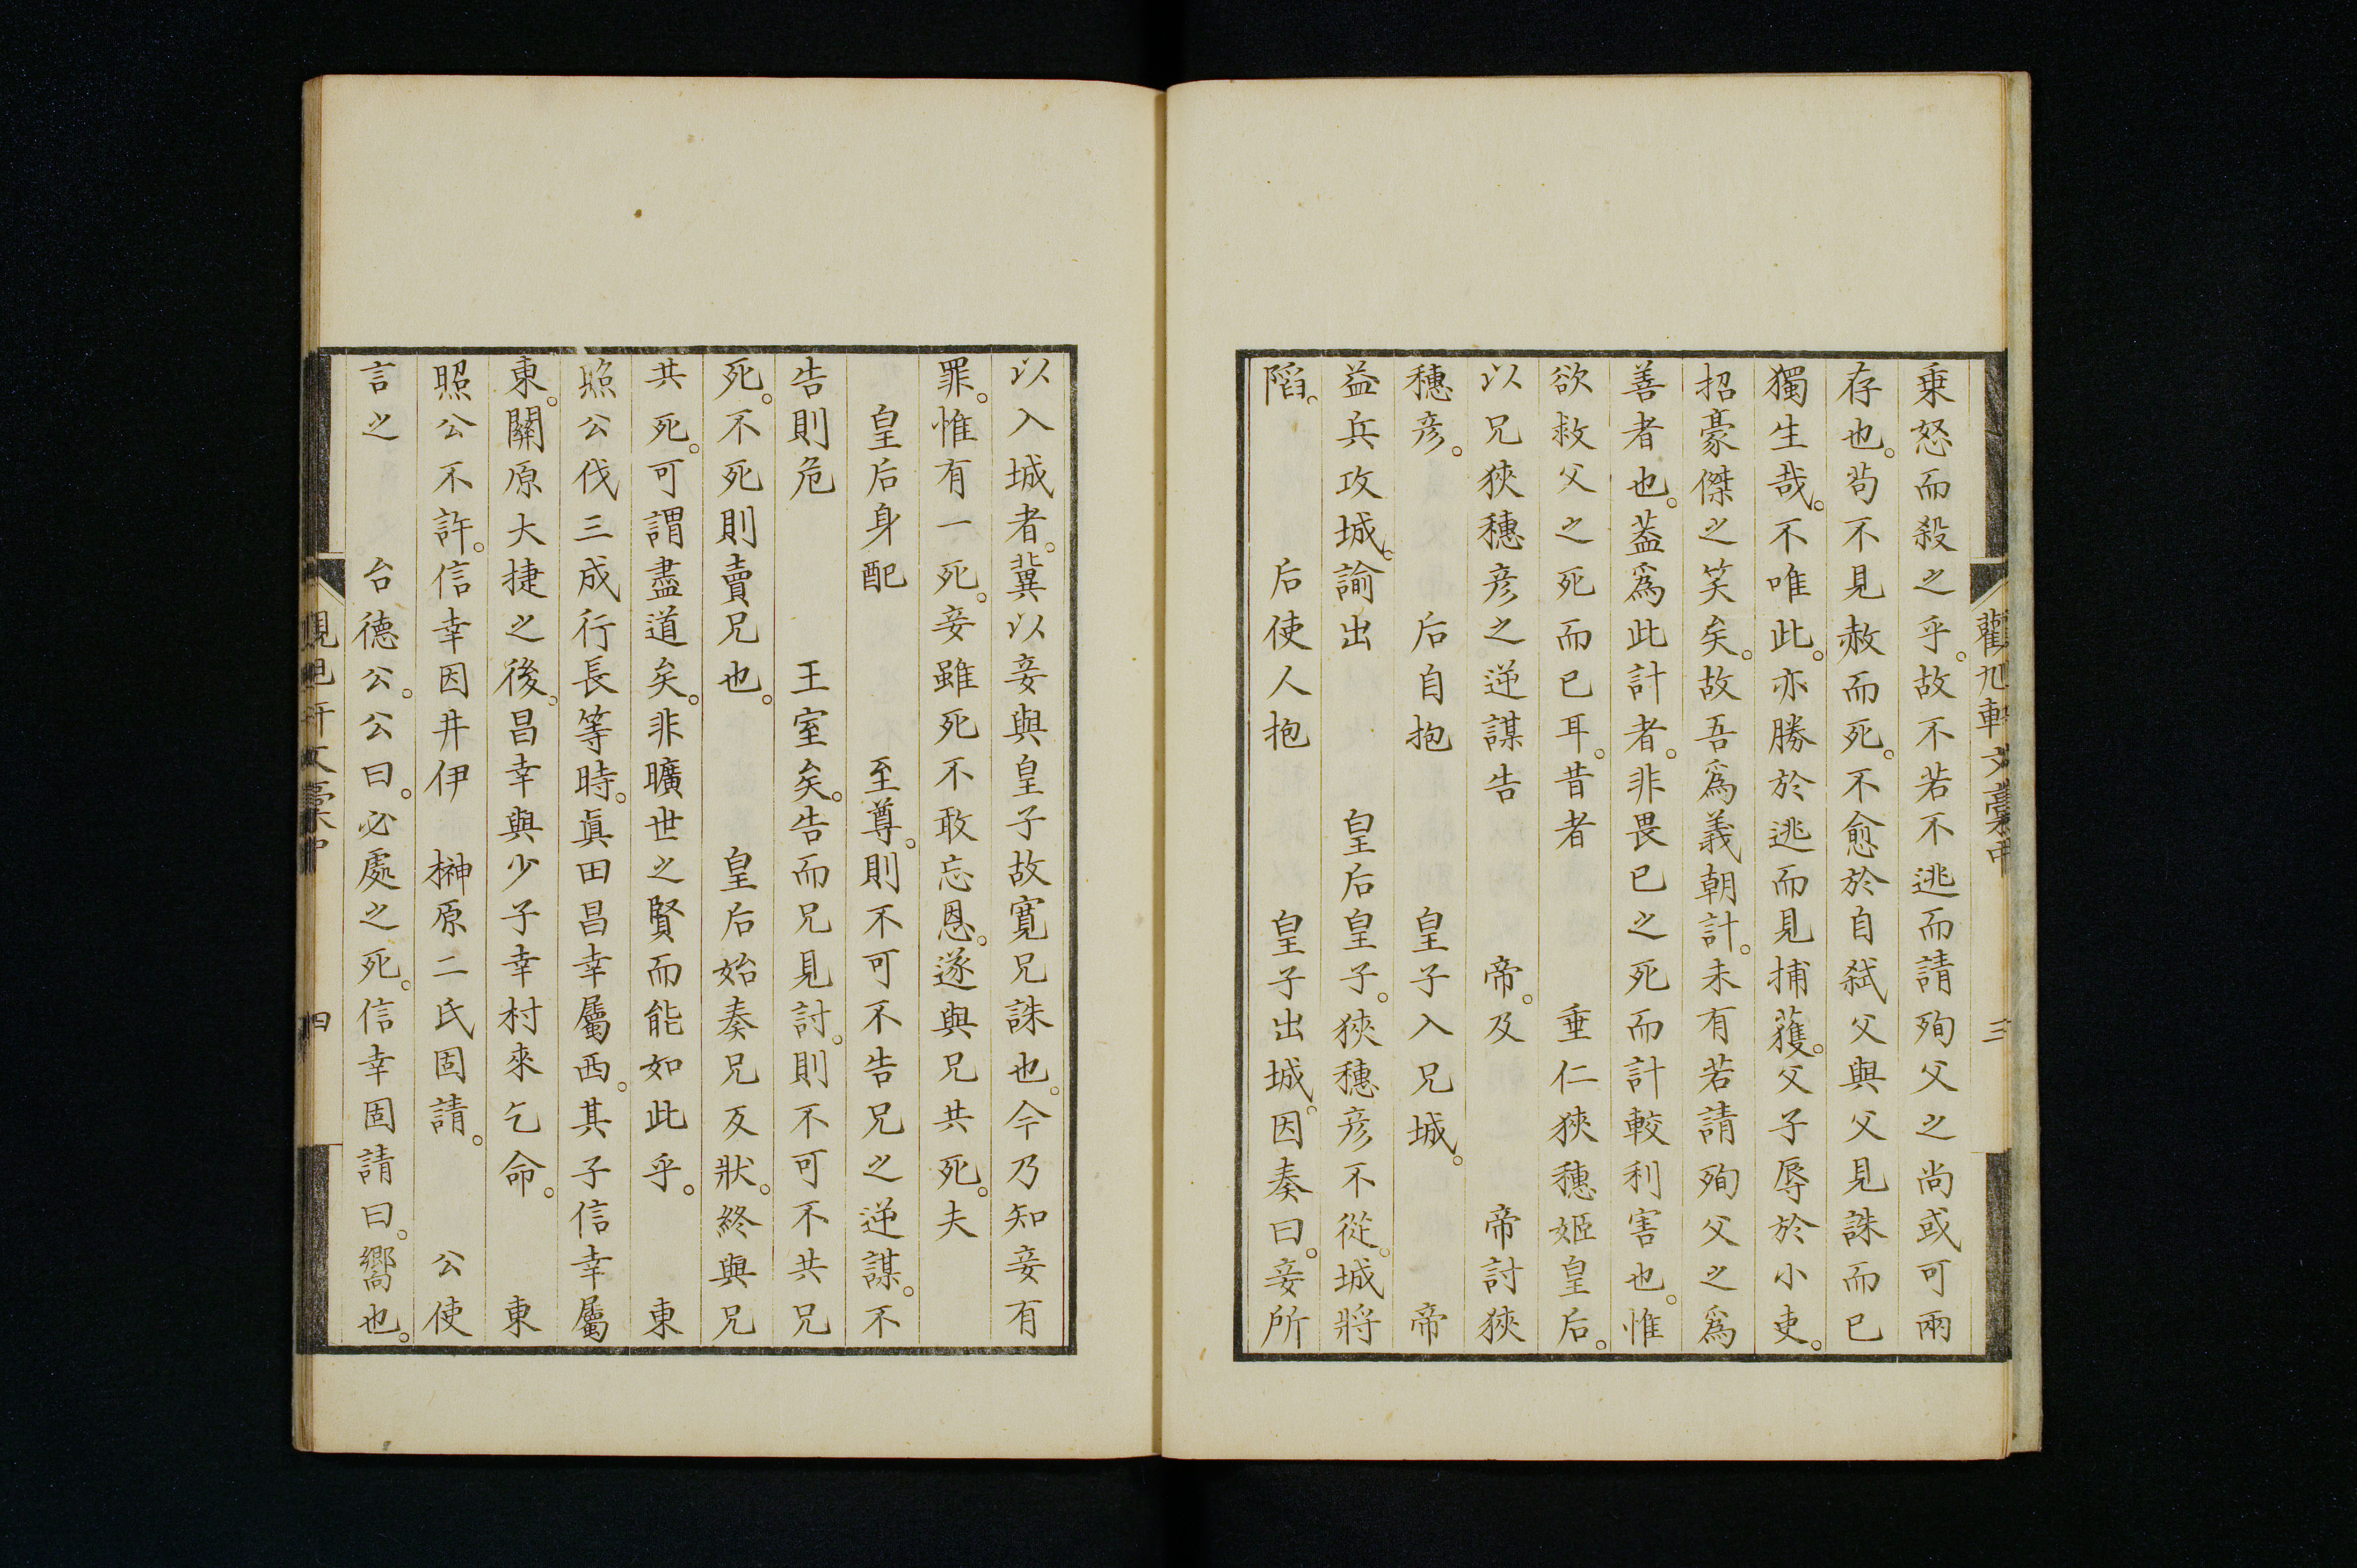 觀旭軒文藁中　三
乗怒而殺之乎。故不若不逃而請殉父之尚或可兩
存也。茍不見赦而死。不愈於自弑父與父見誅而已
獨生哉。不唯此。亦勝於逃而見捕獲。父子辱於小吏。
招豪傑之笑矣。故吾爲義朝計。未有若請殉父之爲
善者也。葢爲此計者。非畏已之死而計較利害也。惟
欲救父之死而已耳。昔者　　垂仁狹穗姬皇后。
以兄狹穗彦之逆謀告　　帝。及　　帝討狹
穗彦。　　后自抱　　皇子入兄城。　　帝
益兵攻城。諭出　　皇后皇子。狹穗彦不從。城將
䧟。　　后使人抱　　皇子出城。因奏曰。妾所
以入城者。冀以妾與皇子故寬兄誅也。今乃知妾有
罪。惟有一死。妾雖死不敢忘恩。遂與兄共死。夫
皇后身配　　至尊。則不可不告兄之逆謀。不
告則危　　王室矣。告而兄見討。則不可不共兄
死。不死則賣兄也。　　皇后始奏兄反狀。終與兄
共死。可謂盡道矣。非曠世之賢而能如此乎。　　東
照公伐三成行長等時。眞田昌幸屬西。其子信幸屬
東。關原大捷之後。昌幸與少子幸村來乞命。　　東
照公不許。信幸因井伊　榊原二氏固請。　　公使
言之　　台德公。公曰。必處之死。信幸固請曰。嚮也。
觀旭軒文藁中　四